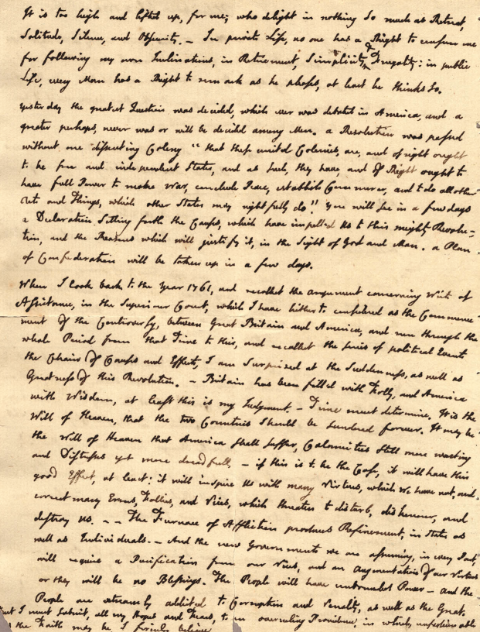 It is too high and lifted up, for me; who delight in nothing so much as Retreat,
Solitude, Silence, and Obscurity. — In private Life, no one has a Right to censure me
for following my own Inclinations, in Retirement, Simplicity, & Frugality: in public
Life, every Man has a Right to remark as he pleases, at least he thinks so.
Yesterday the greatest Question was decided, which ever was debated in America, and a
greater perhaps, never was or will be decided among Men. a Resolution was passed
without one dissenting Colony "that these united Colonies, are, and of right ought
to be free and independent States, and as such, they have, and of Right ought to
have full Power to make War, conclude Peace, establish Commerce, and to do all other
Acts and Things, which other States may rightfully do." You will see in a few days
a Declaration setting forth the Causes, which have impelled Us to this mighty Revolu-
tion, and the Reasons which will justify it, in the Sight of God and Man. a Plan
of Confederation will be taken up in a few days.
When I look back to the Year 1761, and recollect the argument concerning Writs of
Assistance, in the Superiour Court, which I have hitherto considered as the Commence-
ment of the Controversy, between Great Britain and America, and run through the
whole Period from that Time to this, and recollect the series of political Events
the Chain of Causes and Effects, I am surprised at the Suddenness, as well as
Greatness of this Revolution. — Britain has been fill'd with Folly, and America
with Wisdom, at least this is my Judgment. — Time must determine. It is the
Will of Heaven, that the two Countries should be sundered forever. It may be
the Will of Heaven that America shall suffer Calamities still more wasting
and Distresses yet more dreadfull. — if this is to be the Case, it will have this
good Effect, at least: it will inspire Us with many Virtues, which We have not, and
correct many Errors, Follies, and Vices, which threaten to disturb, dishonour, and
destroy Us. — — The Furnace of Affliction produces Refinement, in states as
well as Individuals. — And the new Governments we are assuming, in every Part,
will require a Purification from our Vices, and an Augmentation of our Virtues
or they will be no Blessings. The People will have unbounded Power — and the
People are extreamly addicted to Corruption and Venality, as well as the Great.
but I must submit, all my Hopes and Fears, to an overruling Providence, in which, unfashionable
as the Faith may be, I firmly believe